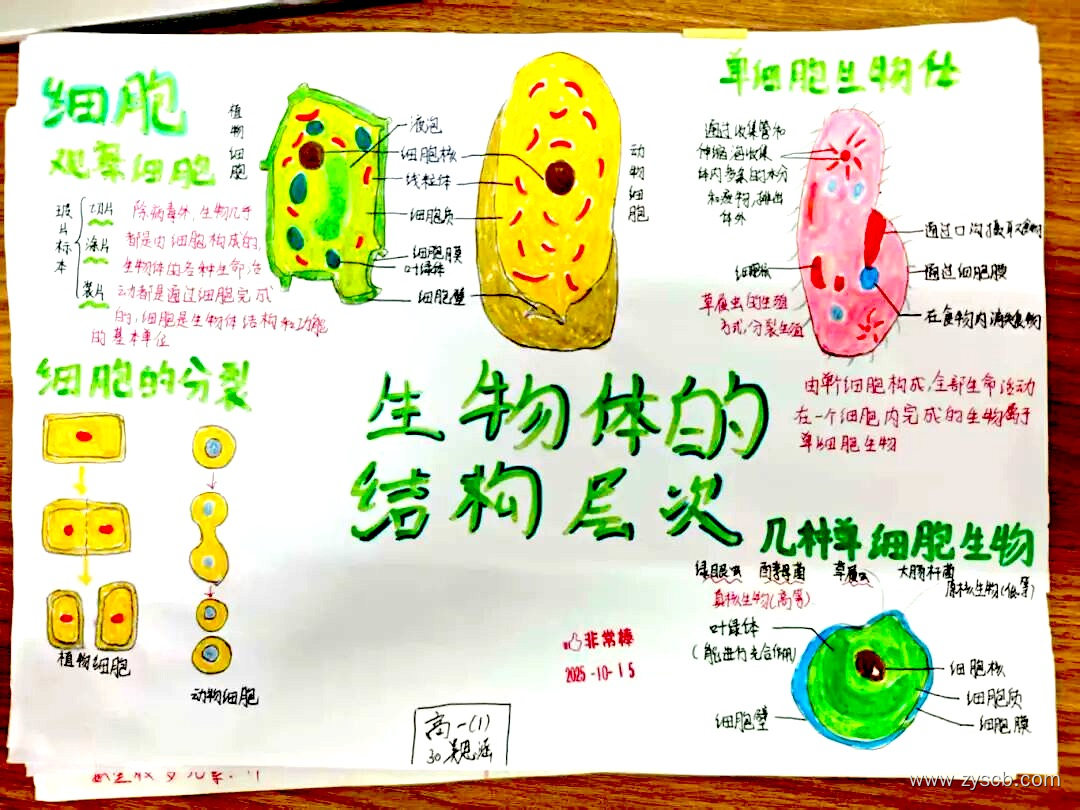 细胞
观察细胞
玻片标本
切片
涂片
装片
除病毒外,生物几乎
都是由细胞构成的,
生物体的各种生命活
动都是通过细胞完成
的,细胞是生物体结构和功能
的基本单位
植物细胞
液泡
细胞核
线粒体
细胞质
细胞膜
叶绿体
细胞壁
动物细胞
单细胞生物
通过收集管和
伸缩泡收集
体内多余的水分
和废物,排出
体外
细胞核
草履虫的生殖
方式,分裂生殖
通过口沟摄取食物
通过细胞膜
在食物内消失食物
由单个细胞构成,全部生命活动
在一个细胞内完成的生物属于
单细胞生物
细胞的分裂
植物细胞
动物细胞
生物体的
结构层次
几种单细胞生物
绿眼虫 酵母菌 草履虫 大肠杆菌
真核生物(高等) 原核生物(低等)
叶绿体
(能进行光合作用)
细胞壁
细胞核
细胞质
细胞膜
非常棒
2025-10-15
高一(1)
30
www.zyscb.com